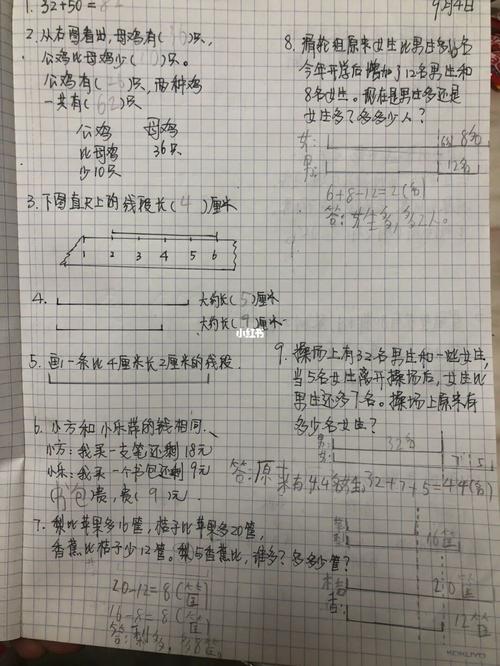 9月4日
1. 32+50=82
2. 从右图看出,母鸡有(36)只,
公鸡比母鸡少(10)只。
公鸡有(26)只,两种鸡
一共有(62)只
公鸡 母鸡
比母鸡 36只
少10只
3. 下图直尺上的线段长(4)厘米
1 2 3 4 5 6
4. 大约长(5)厘米
大约长(9)厘米
5. 画1条比4厘米长2厘米的线段
6. 小方和小乐带的钱相同。
小方:我买一支笔还剩18元
小乐:我买一个书包还剩9元
(书包)贵,贵(9)元
7. 梨比苹果多16筐,桔子比苹果多20筐,
香蕉比桔子少12筐。梨与香蕉比,谁多?多多少筐?
20-12=8(筐)
16-8=8(筐)
答:梨多,多8筐。
16筐
桔
20筐
香
12筐
8. 滑轮组原来女生比男生多6名
今年开学后增加了12名男生和
8名女生。现在是男生多还是
女生多?多多少人?
女: 6名 8名
男: 12名
6+8-12=2(名)
答:女生多,多2人。
9. 操场上有32名男生和一些女生,
当5名女生离开操场后,女生比
男生还多7名。操场上原来有
多少名女生?
男: 32名
女: 7 5
32+7+5=44(名)
答:原来有44名女生
小红书
KOKUYO